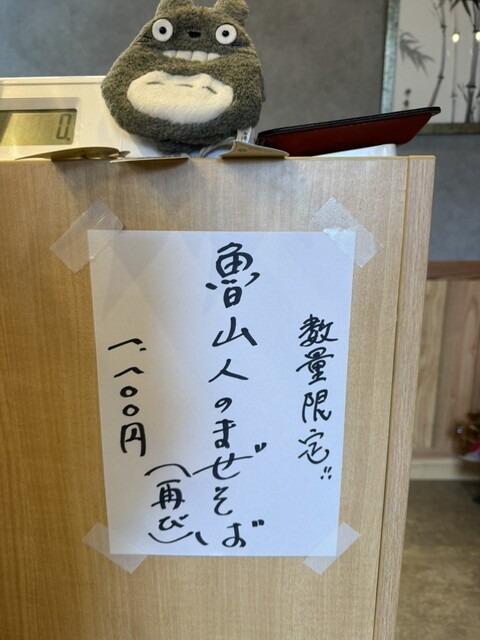 数量限定!!
魯山人のまぜそば
(再び)
一、一〇〇円
0.